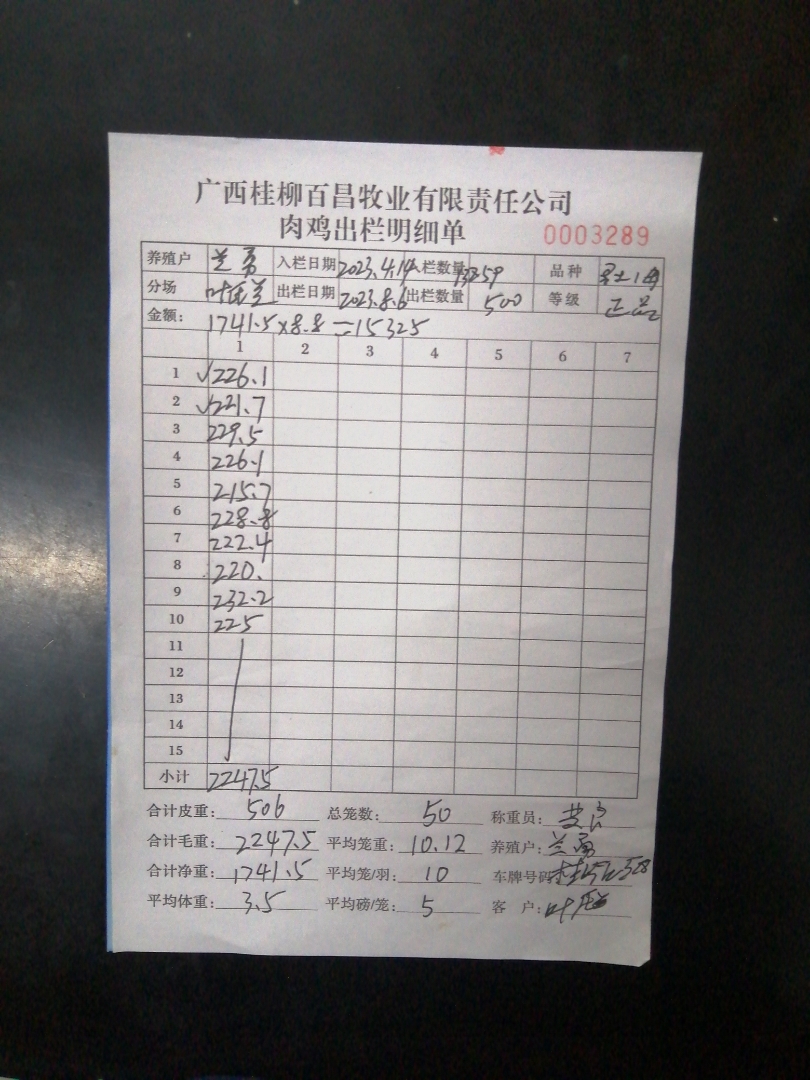 广西桂柳百昌牧业有限责任公司
肉鸡出栏明细单 0003289
养殖户 兰勇 入栏日期 2023.4.14 入栏数量 13359 品种
分场 叶 出栏日期 2023.8.6 出栏数量 500 等级 正品
金额: 1741.5×8.8=15325
1 2 3 4 5 6 7
1 √226.1
2 √221.7
3 229.5
4 226.1
5 215.7
6 228.8
7 222.4
8 220.
9 232.2
10 225
11
12
13
14
15
小计 2247.5
合计皮重: 506 总笼数: 50 称重员:
合计毛重: 2247.5 平均笼重: 10.12 养殖户: 兰勇
合计净重: 1741.5 平均笼/羽: 10 车牌号码
平均体重: 3.5 平均磅/笼: 5 客 户: 叶